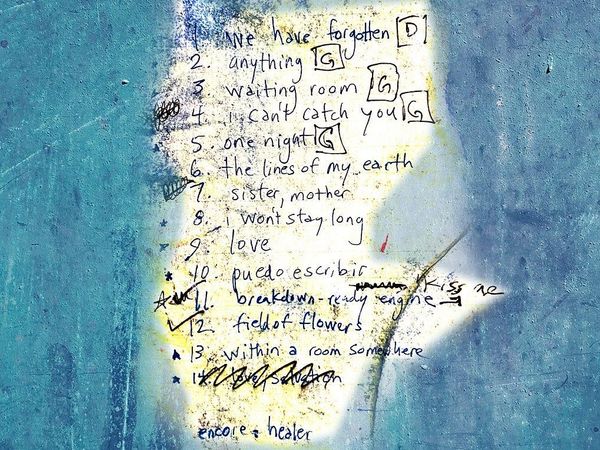 1. we have forgotten D
2. anything G
3 waiting room G
4. i can't catch you G
5. one night G
6. the lines of my earth
7. sister, mother
8. i won't stay long
9. love
10. puedo escribir
Kiss me
11. breakdown-ready engine
12. field of flowers
13 within a room somewhere
14.
encore: healer